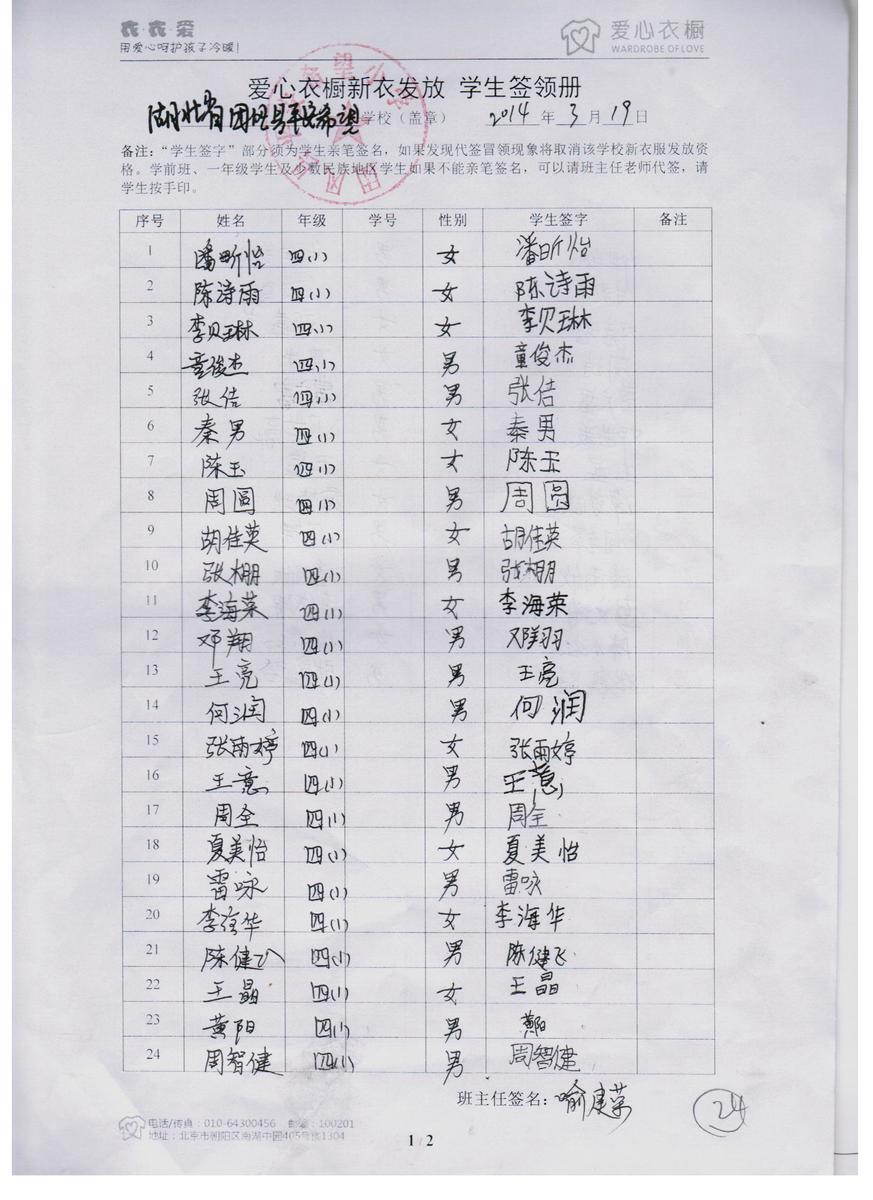 衣·衣·爱
用爱心呵护孩子冷暖!
爱心衣橱
WARDROBE OF LOVE
爱心衣橱新衣发放 学生签领册
湖北省团风县 希望 学校（盖章） 2014 年 3 月 19 日
备注：“学生签字”部分须为学生亲笔签名，如果发现代签冒领现象将取消该学校新衣服发放资
格。学前班、一年级学生及少数民族地区学生如果不能亲笔签名，可以请班主任老师代签，请
学生按手印。
序号 姓名 年级 学号 性别 学生签字 备注
1 潘昕怡 四(1) 女 潘昕怡
2 陈诗雨 四(1) 女 陈诗雨
3 李贝琳 四(1) 女 李贝琳
4 童俊杰 四(1) 男 童俊杰
5 张佶 四(1) 男 张佶
6 秦男 四(1) 女 秦男
7 陈玉 四(1) 女 陈玉
8 周圆 四(1) 男 周圆
9 胡佳英 四(1) 女 胡佳英
10 张棚 四(1) 男 张棚
11 李海荣 四(1) 女 李海荣
12 邓翔 四(1) 男 邓翔
13 王亮 四(1) 男 王亮
14 何润 四(1) 男 何润
15 张雨婷 四(1) 女 张雨婷
16 王意 四(1) 男 王意
17 周全 四(1) 男 周全
18 夏美怡 四(1) 女 夏美怡
19 雷咏 四(1) 男 雷咏
20 李海华 四(1) 女 李海华
21 陈健飞 四(1) 男 陈健飞
22 王晶 四(1) 女 王晶
23 黄阳 四(1) 男 黄阳
24 周智健 四(1) 男 周智健
班主任签名：喻建荣
24
电话/传真：010-64300456 邮编：100201
地址：北京市朝阳区南湖中园405号楼1304
1 / 2